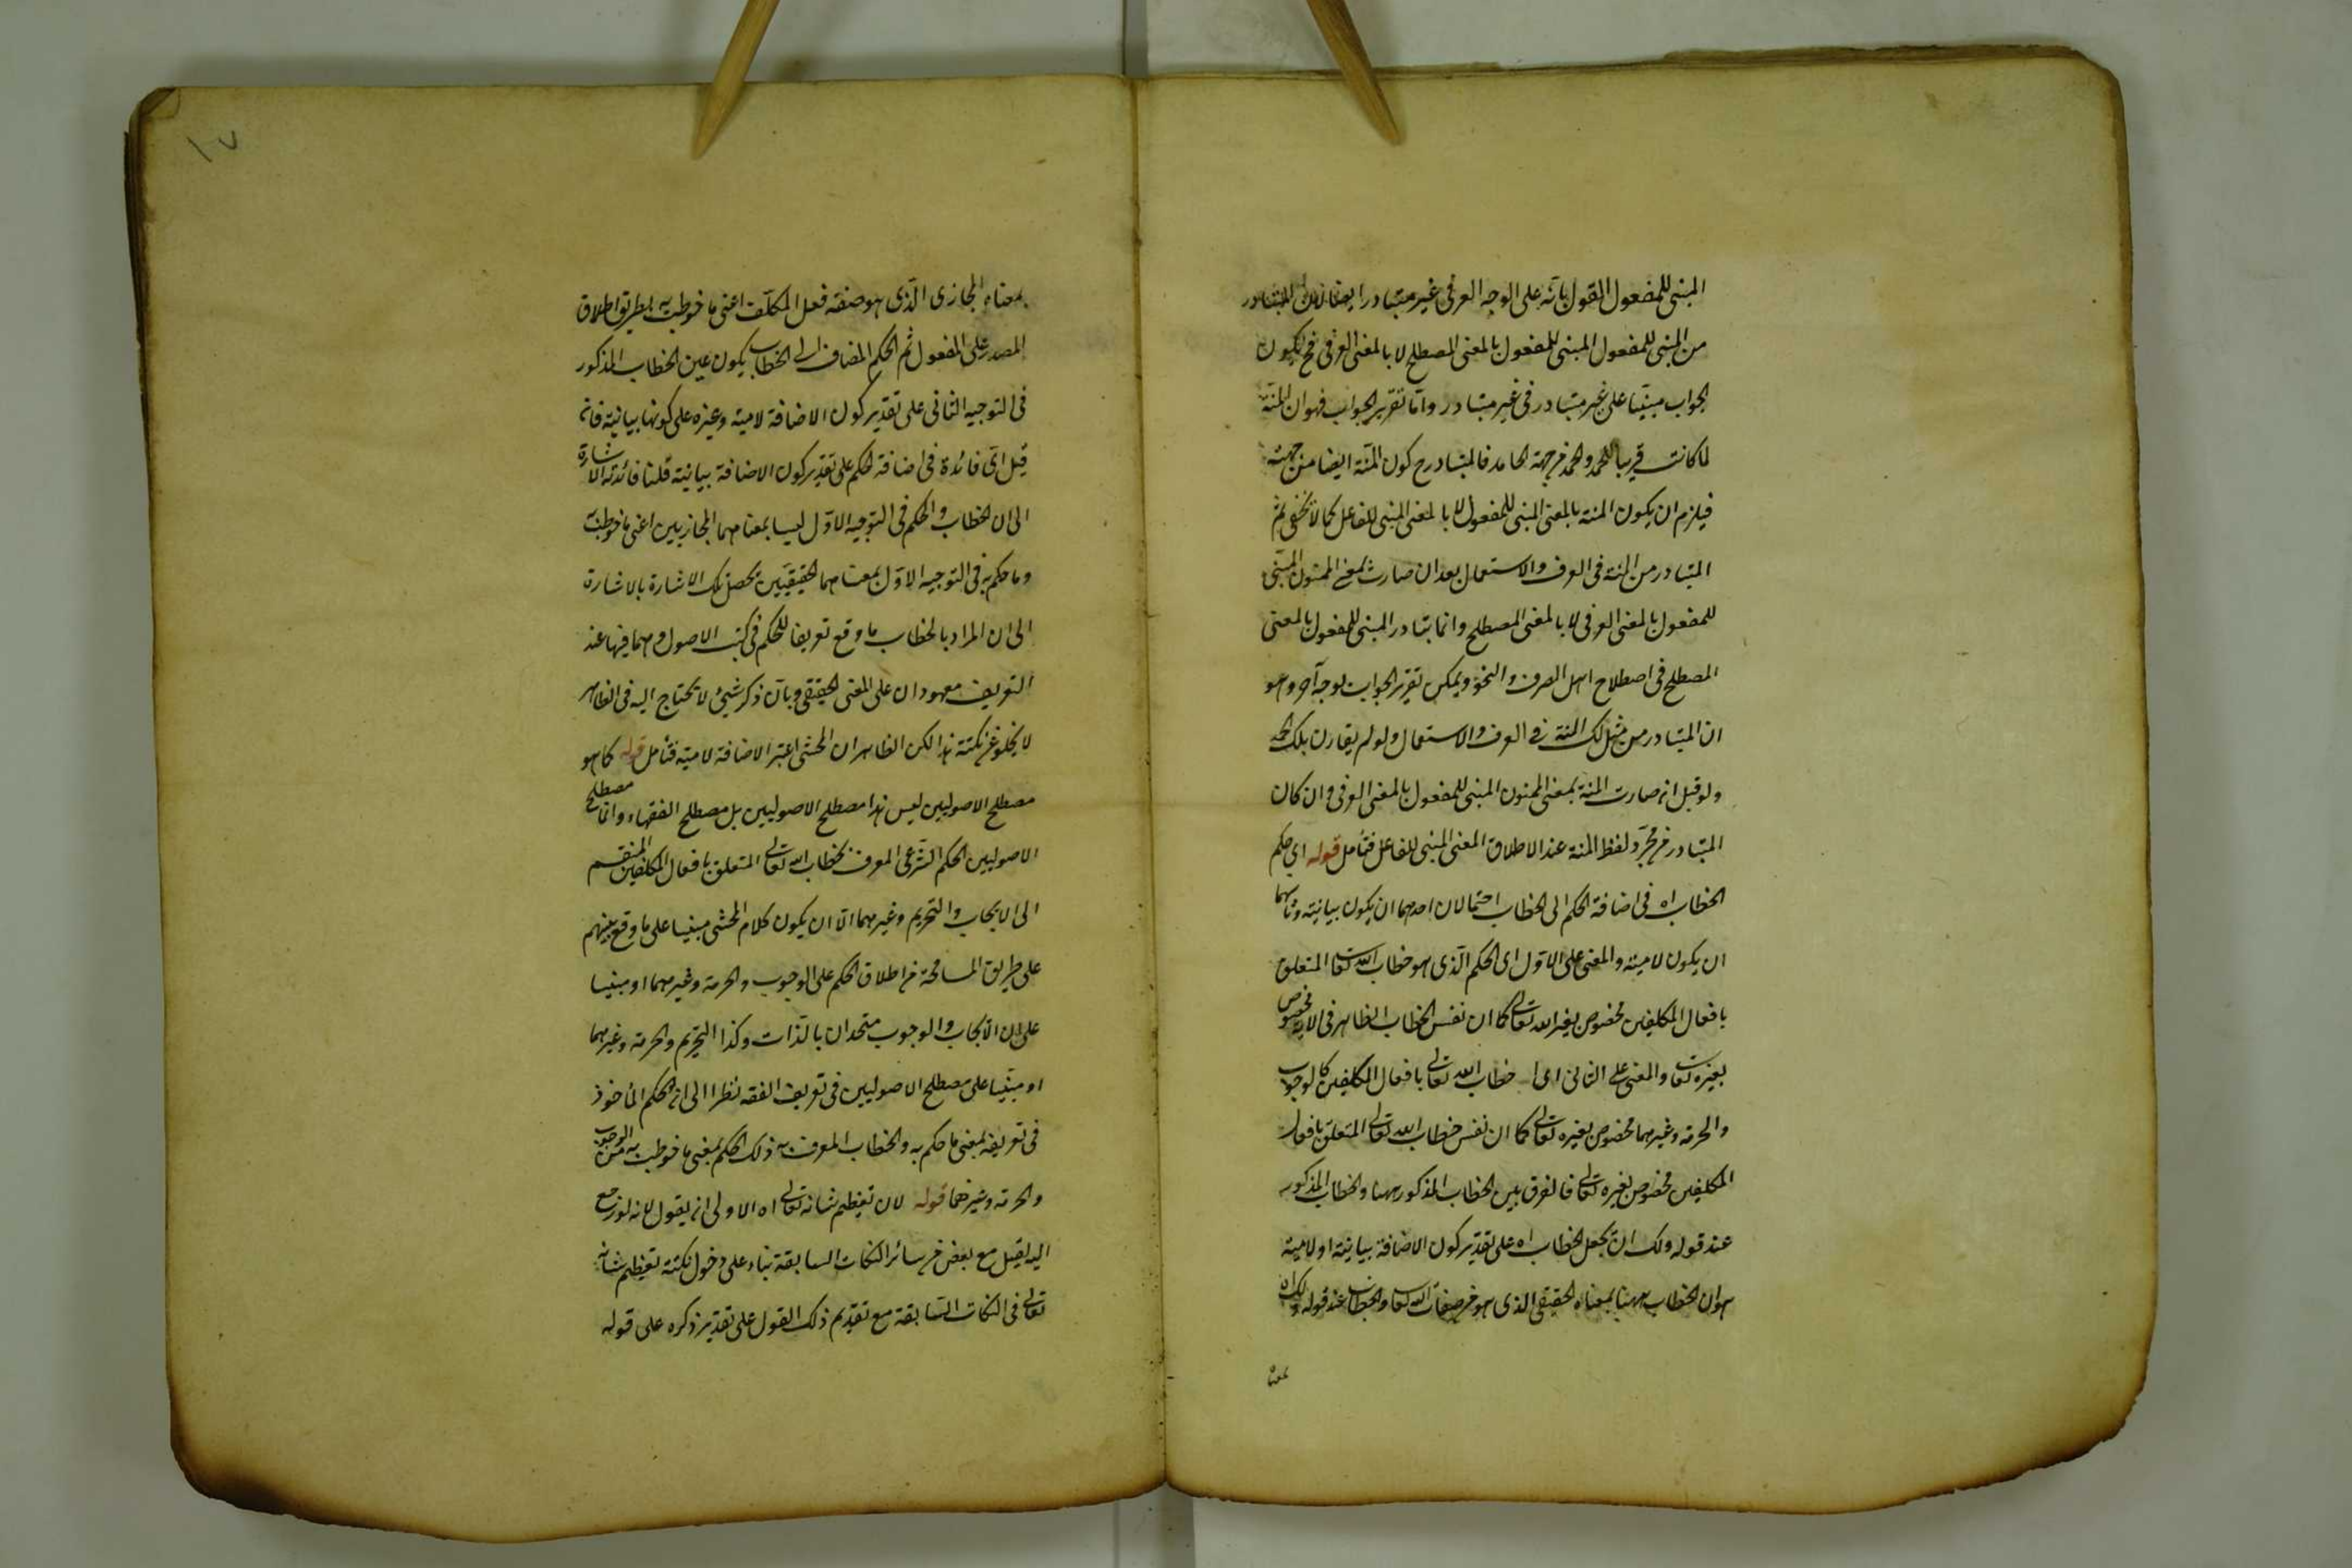 المبنى للمفعول القول بانه على الوجه العرفى غير متبادر ايضا لان المتبادر
من المبنى للمفعول المبنى للمفعول بالمعنى المصطلح لا بالمعنى العرفى فح يكون
الجواب مبنيا على غير متبادر فى غير متبادر واما تقرير الجواب فهو ان المنة
لما كانت قريبا للحمد والحمد من جهة الحامد فالمتبادر ح كون المنة ايضا من جهته
فيلزم ان يكون المنة بالمعنى المبنى للمفعول لا بالمعنى المبنى للفاعل كما لا يخفى ثم
المتبادر من المنة فى العرف والاستعمال بعد ان صارت بمعنى الممنون المبنى
للمفعول بالمعنى العرفى لا بالمعنى المصطلح وانما يتبادر المبنى للمفعول بالمعنى
المصطلح فى اصطلاح اهل الصرف والنحو ويمكن تقرير الجواب بوجه آخر وهو
ان المتبادر من مثل لك المنة فى العرف والاستعمال ولو لم يقارن بلك الحمد
ولو قيل انه صارت المنة بمعنى الممنون المبنى للمفعول بالمعنى العرفى وان كان
المتبادر من مجرد لفظ المنة عند الاطلاق المعنى المبنى للفاعل فتأمل قوله اى حكم
الخطاب اه فى اضافة الحكم الى الخطاب احتمالان احدهما ان يكون بيانية وثانيهما
ان يكون لامية والمعنى على الاول اى الحكم الذى هو خطاب الله تعا المتعلق
بافعال المكلفين مخصوص بغير الله تعالى كما ان نفس الخطاب الظاهر فى الاية مخصوص
بغيره تعا والمعنى على الثانى اى خطاب الله تعالى بافعال المكلفين كالوجوب
والحرمة وغيرهما مخصوص بغيره تعالى كما ان نفس خطاب الله تعالى المتعلق بافعال
المكلفين مخصوص بغيره تعالى فالفرق بين الخطاب المذكور ههنا والخطاب المذكور
عند قوله ولك ان تجعل الخطاب اه على تقدير كون الاضافة بيانية او لامية
هو ان الخطاب ههنا بمعناه الحقيقى الذى هو من صفات الله تعا والخطاب عند قوله ولك اه
بمعناه
١٧
بمعناه المجازى الذى هو صفة فعل المكلف اعنى ما خوطب به بطريق اطلاق
المصدر على المفعول ثم الحكم المضاف الى الخطاب يكون عين الخطاب المذكور
فى التوجيه الثانى على تقدير كون الاضافة لامية وغيره على كونها بيانية فانه
قيل اى فائدة فى اضافة الحكم على تقدير كون الاضافة بيانية قلنا فائدته الاشارة
الى ان الخطاب والحكم فى التوجيه الاول ليسا بمعناهما المجازيين اعنى ما خوطب به
وما حكم به فى التوجيه الاول بمعناهما الحقيقيين تحصل تلك الاشارة بالاشارة
الى ان المراد بالخطاب ما وقع تعريفا للحكم فى كتب الاصول وهما فيها عند
التعريف معهودان على المعنى الحقيقى وبان ذكر شيئ لا يحتاج اليه فى الظاهر
لا يخلو عن نكتة هذا لكن الظاهر ان المحشى اعتبر الاضافة لامية فتأمل قوله كما هو
مصطلح الاصوليين ليس هذا مصطلح الاصوليين بل مصطلح الفقهاء وانما مصطلح
الاصوليين الحكم الشرعى المعرف بخطاب الله تعالى المتعلق بافعال المكلفين المنقسم
الى الايجاب والتحريم وغيرهما الا ان يكون كلام المحشى مبنيا على ما وقع بينهم
على طريق المسامحة من اطلاق الحكم على الوجوب والحرمة وغيرهما او مبنيا
على ان الايجاب والوجوب متحدان بالذات وكذا التحريم والحرمة وغيرهما
او مبنيا على مصطلح الاصوليين فى تعريف الفقه نظرا الى ان الحكم المأخوذ
فى تعريفه بمعنى ما حكم به والخطاب المعرف به ذلك الحكم بمعنى ما خوطب به من الوجوب
والحرمة وغيرهما قوله لان تعظيم شانه تعالى اه الاولى ان يقول لانه لو رجع
اليه لقيل مع بعض من سائر النكات السابقة بناء على دخول نكتة تعظيم شانه
تعالى فى النكات السابقة مع تقديم ذلك القول على تقدير ذكره على قوله